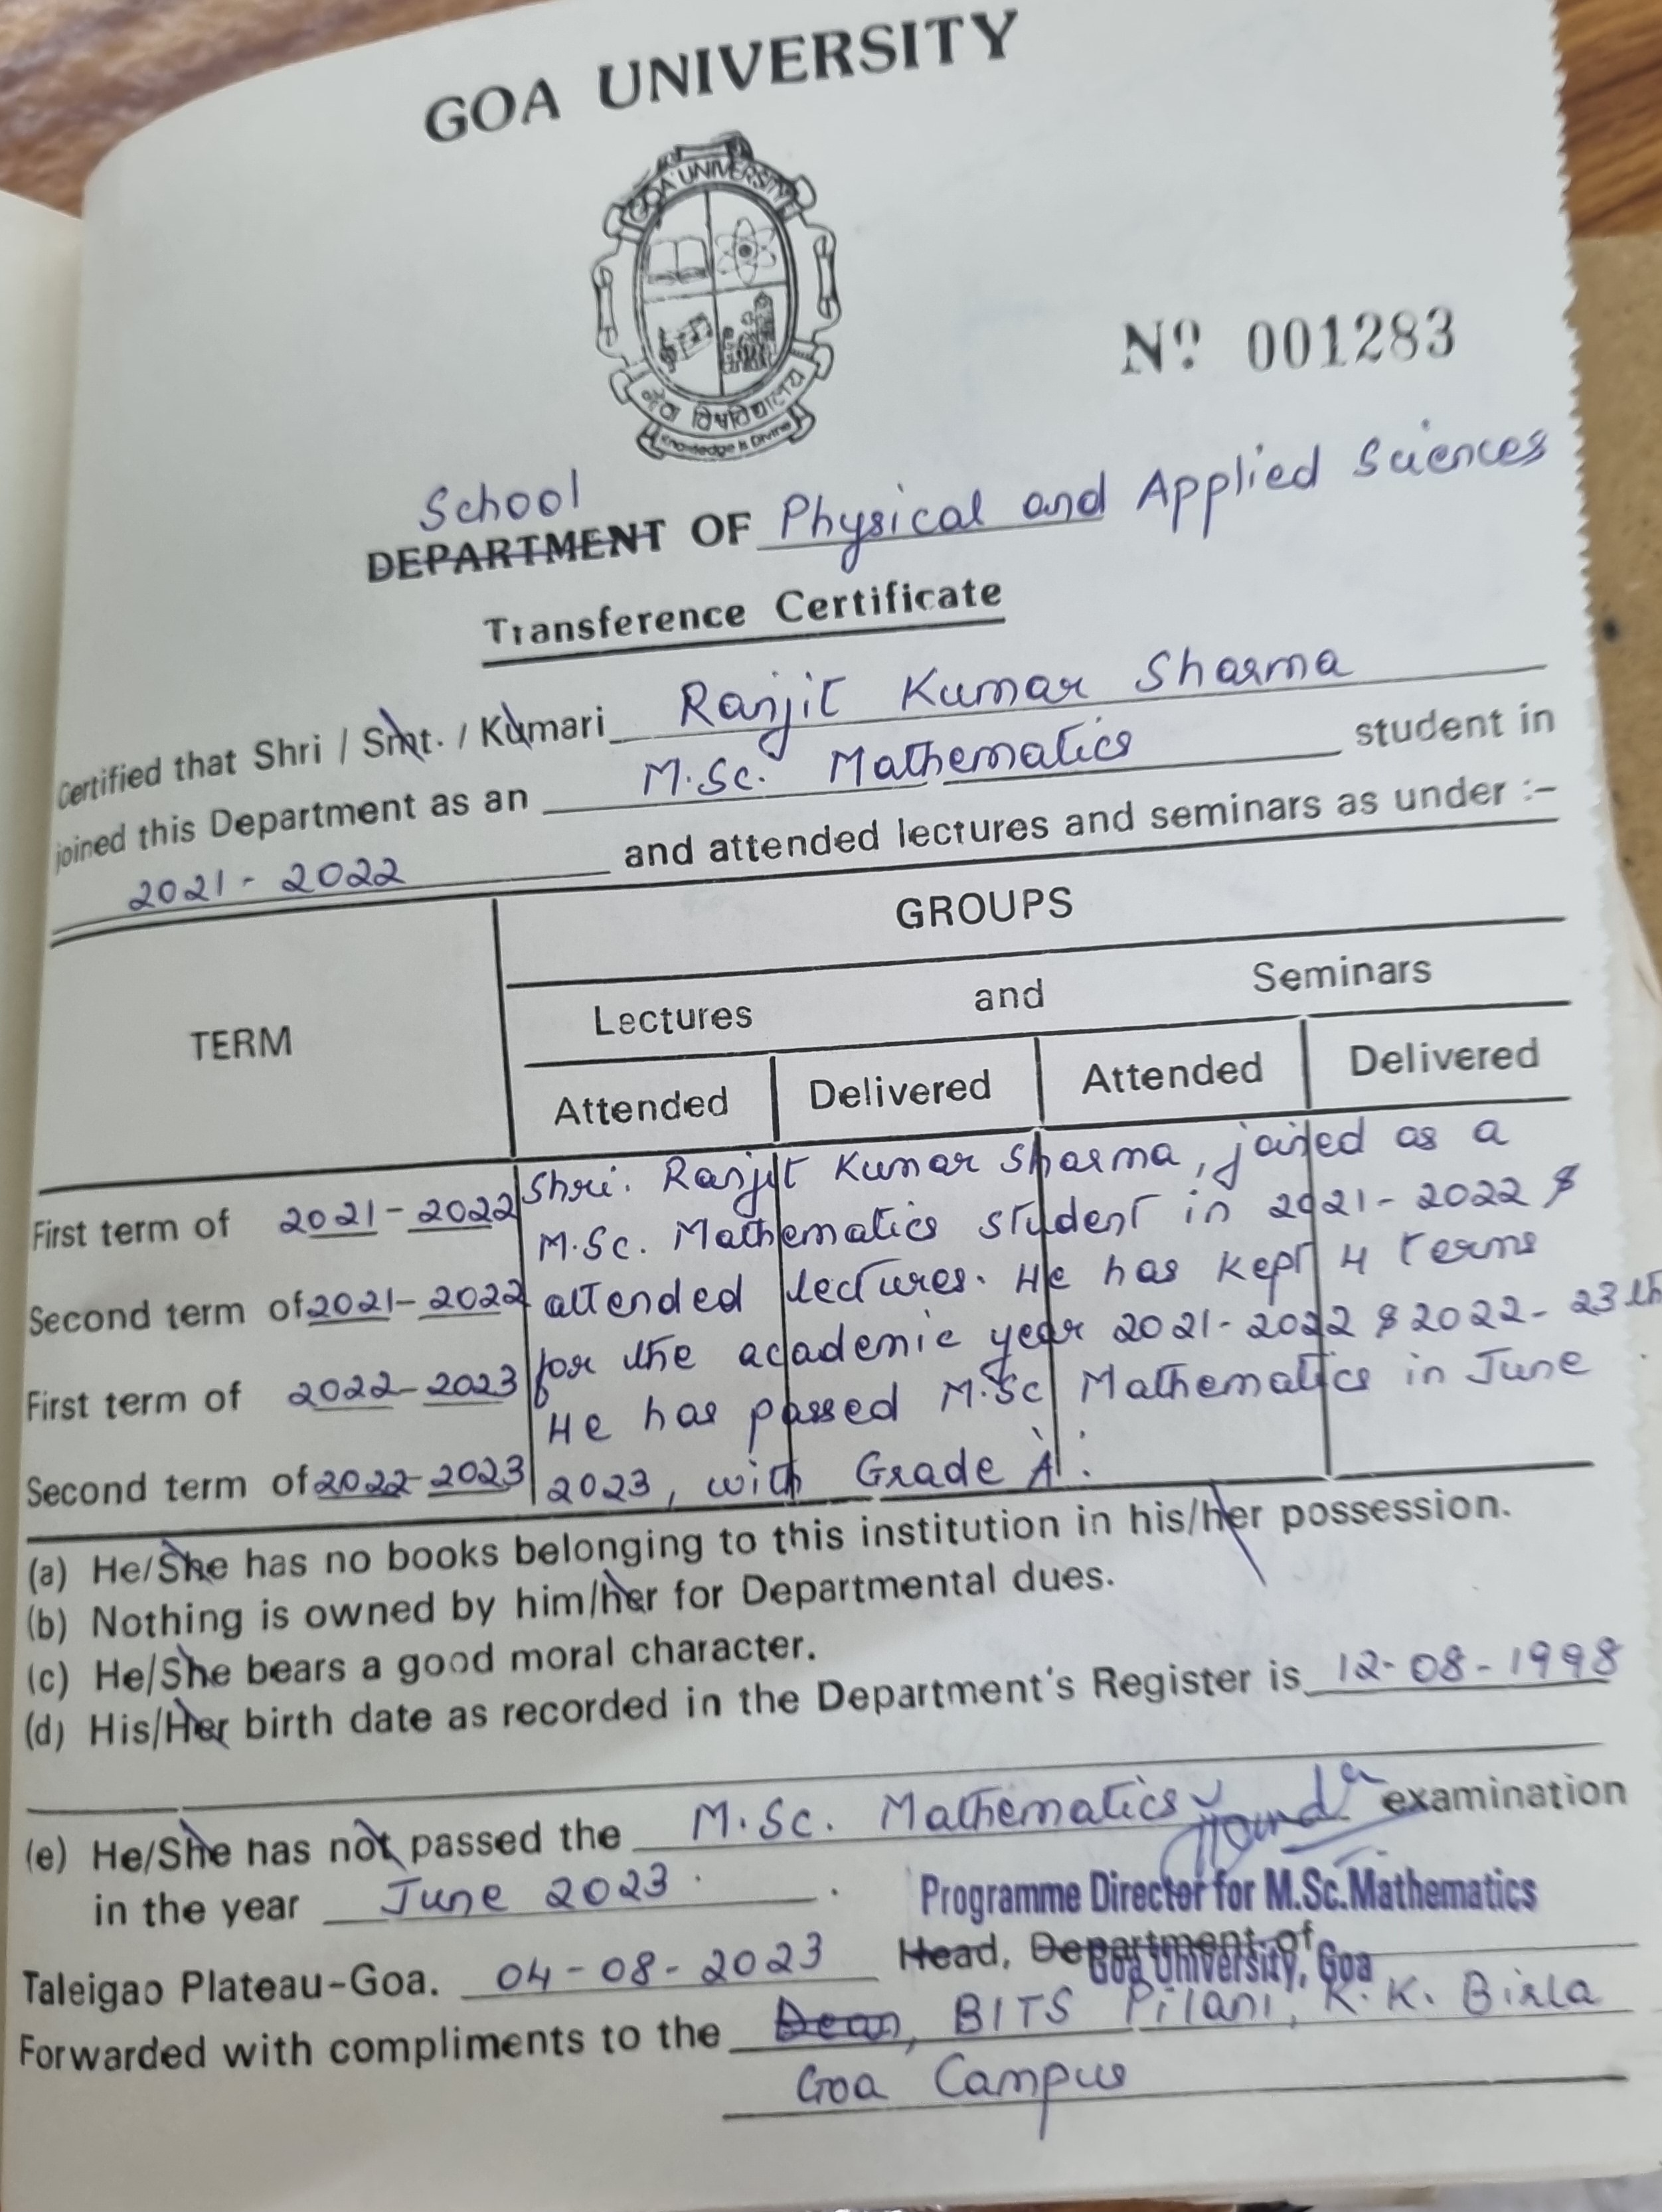 GOA UNIVERSITY
GOA UNIVERSITY
गोंय विश्वविद्यालय
Knowledge is Divine
Nº 001283
School
DEPARTMENT OF Physical and Applied Sciences
Transference Certificate
Certified that Shri / Smt. / Kumari Ranjit Kumar Sharma
joined this Department as an M.Sc. Mathematics student in
2021 - 2022 and attended lectures and seminars as under :-
GROUPS
TERM
Lectures and Seminars
Attended Delivered Attended Delivered
First term of 2021 - 2022
Second term of 2021 - 2022
First term of 2022 - 2023
Second term of 2022 - 2023
Shri. Ranjit Kumar Sharma, joined as a
M.Sc. Mathematics student in 2021 - 2022 &
attended lectures. He has kept 4 terms
for the academic year 2021 - 2022 & 2022 - 23
He has passed M.Sc Mathematics in June
2023, with Grade 'A'.
(a) He/She has no books belonging to this institution in his/her possession.
(b) Nothing is owned by him/her for Departmental dues.
(c) He/She bears a good moral character.
(d) His/Her birth date as recorded in the Department's Register is 12-08-1998
(e) He/She has not passed the M.Sc. Mathematics examination
in the year June 2023.
Programme Director for M.Sc.Mathematics
Head, Department of
Goa University, Goa
Taleigao Plateau-Goa. 04-08-2023
Forwarded with compliments to the Dean, BITS Pilani, K.K. Birla
Goa Campus